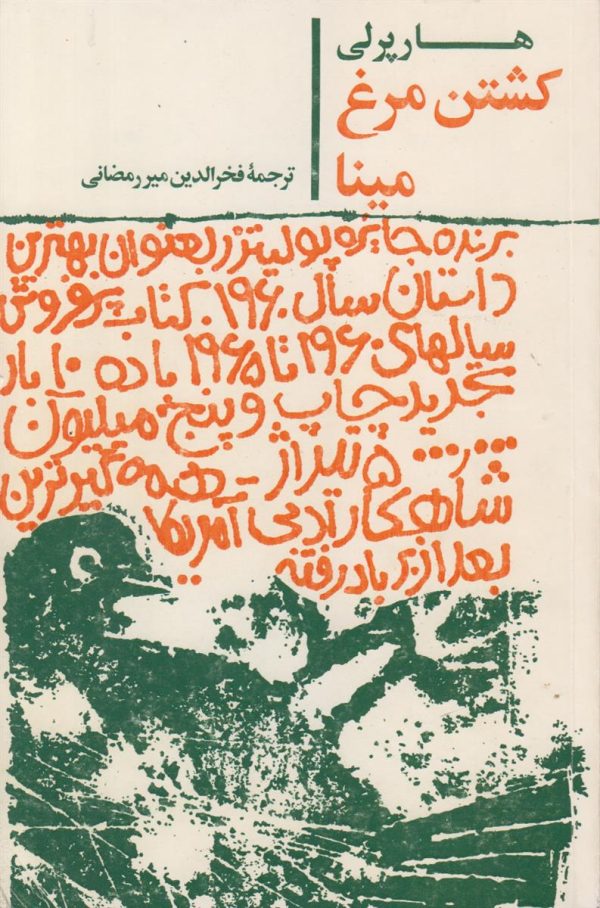 هارپرلی
کشتن مرغ
مینا
ترجمهٔ فخرالدین میررمضانی
برنده جایزه پولیتزر بعنوان بهترین
داستان سال ۱۹۶۰. کتاب پرفروش
سالهای ۱۹۶۰ تا ۱۹۶۵ با ده ۱۰ بار
تجدید چاپ و پنج میلیون
۵٬۰۰۰٬۰۰۰ تیراژ - همه گیرترین
شاهکار ادبی آمریکا
بعد از بر باد رفته